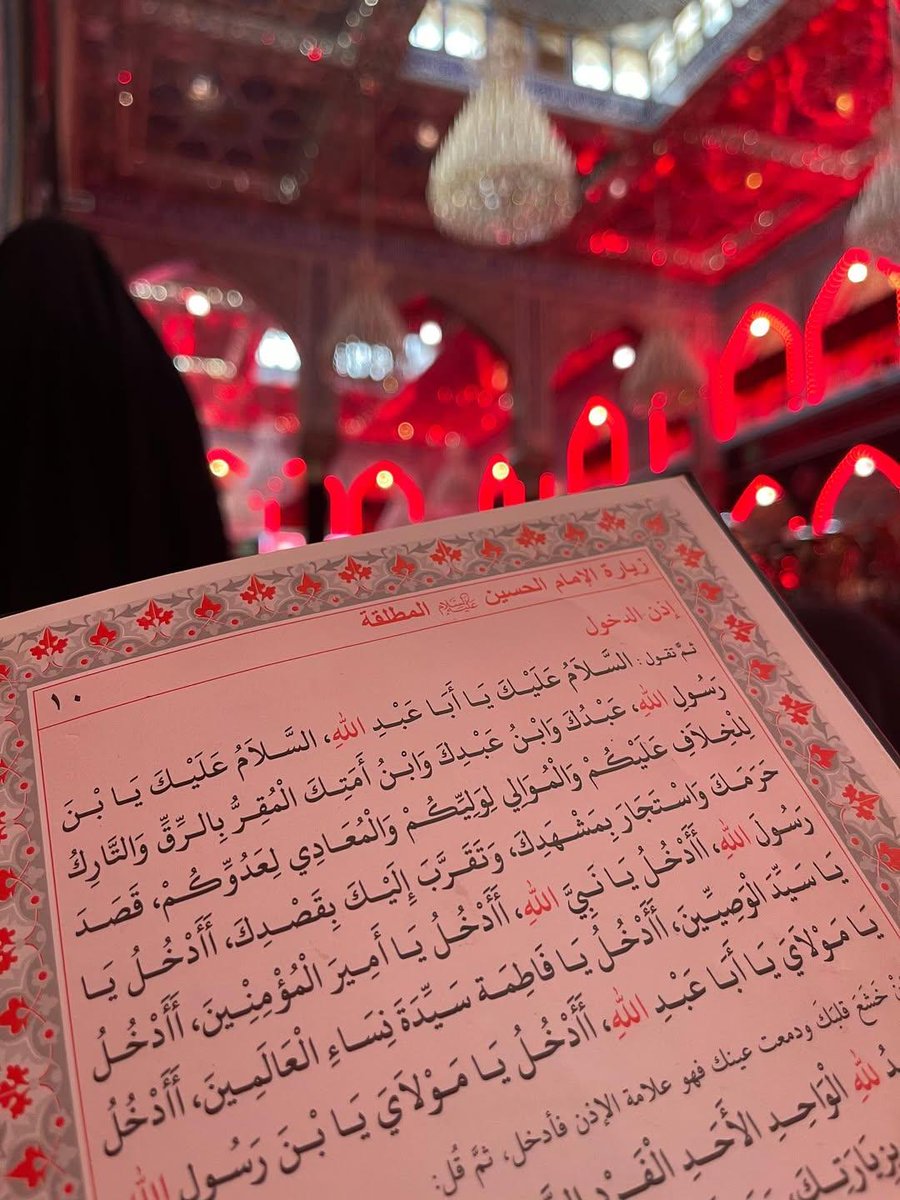 زيارة الإمام الحسين عليه السلام المطلقة
١٠
إذن الدخول
ثمّ تقول: السَّلاَمُ عَلَيْكَ يَا أَبَا عَبْدِ اللهِ، السَّلاَمُ عَلَيْكَ يَا بْنَ
رَسُولِ اللهِ، عَبْدُكَ وَابْنُ عَبْدِكَ وَابْنُ أَمَتِكَ الْمُقِرُّ بِالرِّقِّ وَالتَّارِكُ
لِلْخِلَافِ عَلَيْكُمْ وَالْمُوَالِي لِوَلِيِّكُمْ وَالْمُعَادِي لِعَدُوِّكُمْ، قَصَدَ
حَرَمَكَ وَاسْتَجَارَ بِمَشْهَدِكَ، وَتَقَرَّبَ إِلَيْكَ بِقَصْدِكَ، أَأَدْخُلُ يَا
رَسُولَ اللهِ، أَأَدْخُلُ يَا نَبِيَّ اللهِ، أَأَدْخُلُ يَا أَمِيرَ الْمُؤْمِنِينَ، أَأَدْخُلُ
يَا سَيِّدَ الْوَصِيِّينَ، أَأَدْخُلُ يَا فَاطِمَة سَيِّدَةَ نِسَاءِ الْعَالَمِينَ، أَأَدْخُلُ
يَا مَوْلَايَ يَا أَبَا عَبْدِ اللهِ، أَأَدْخُلُ يَا مَوْلَايَ يَا بْنَ رَسُولِ اللهِ
خَشَعَ قلبك ودمعت عينك فهو علامة الإذن فأدخل، ثمَّ قُل:
للهِ الْوَاحِدِ الأَحَدِ الْفَرْدِ